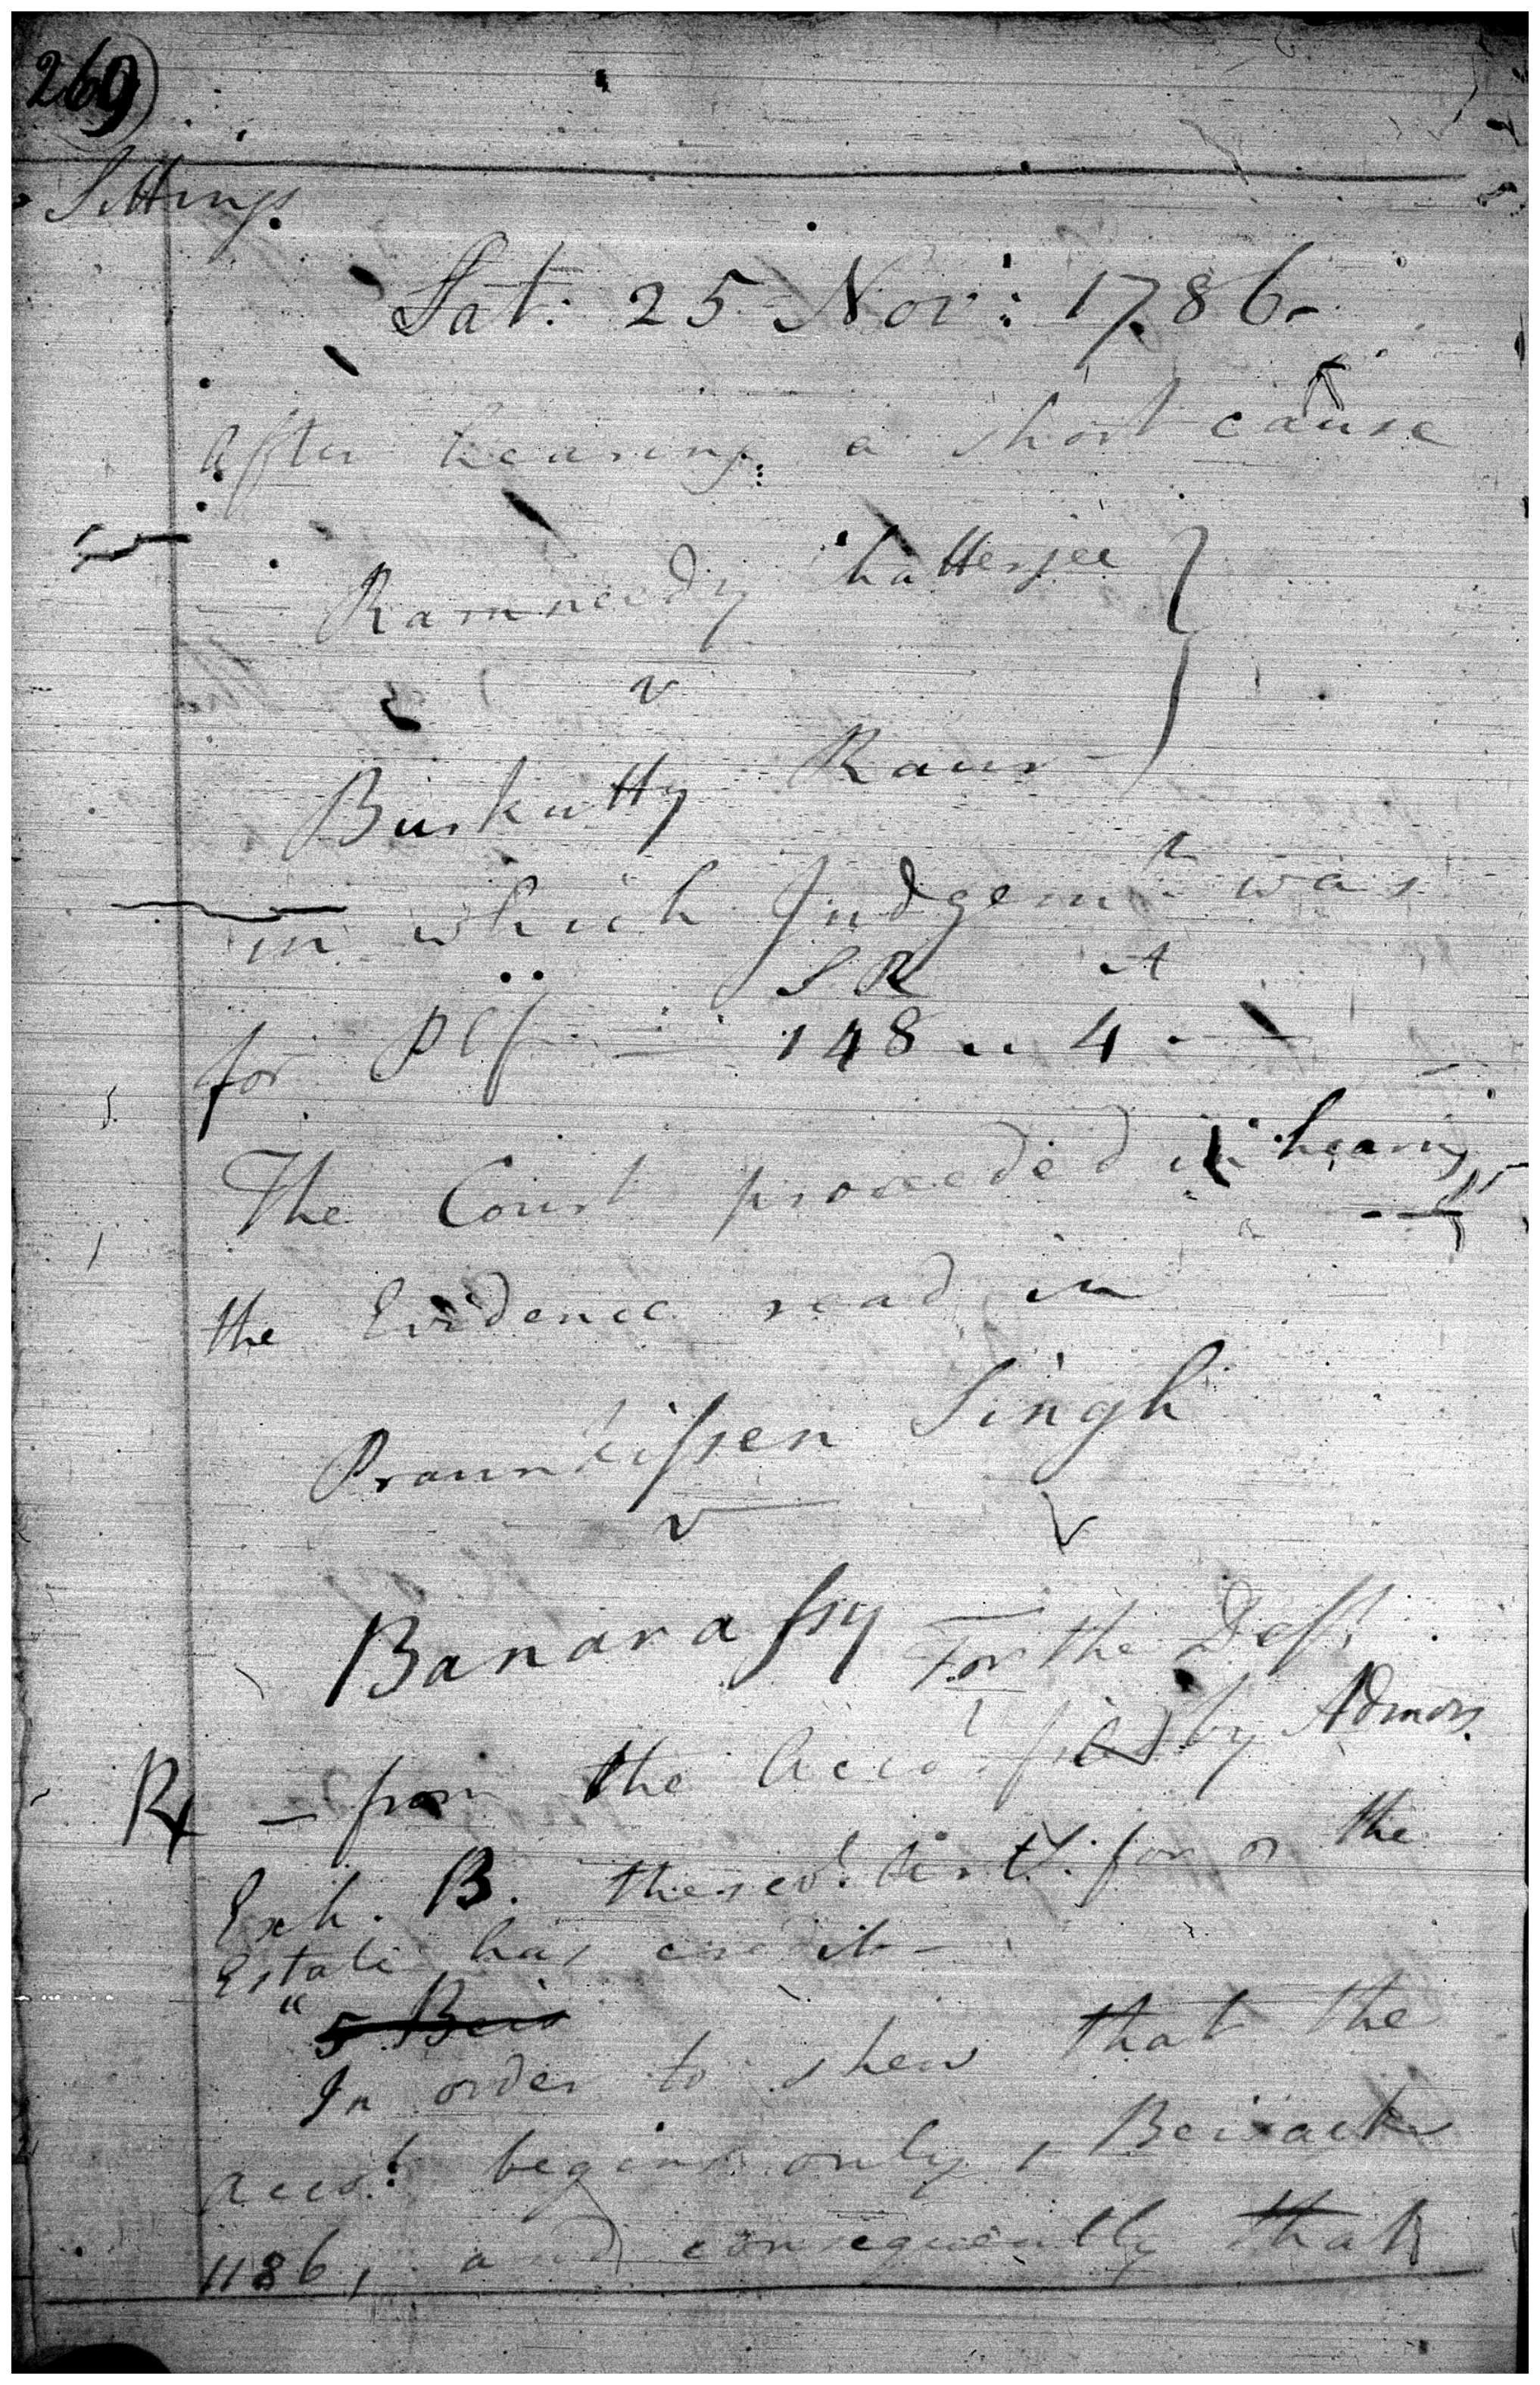 269
Sittings
Sat: 25 Nov: 1786-
After hearing a short cause
Ramneedy Chatterjee
v
Buskutty Raur
in which Judgemt. was
S R A
for Plf — 148 .. 4 . —
The Court proceeded in hearing
the Evidence read in
Praunkissen Singh
v
Banarassy For the Deft.
— from the Accot. filed by Admors.
Exh. B. the for or the
Estate has credit —
" 5 Beis
In order to shew that the
accot: begins only 1 Beisack
1186, and consequently that